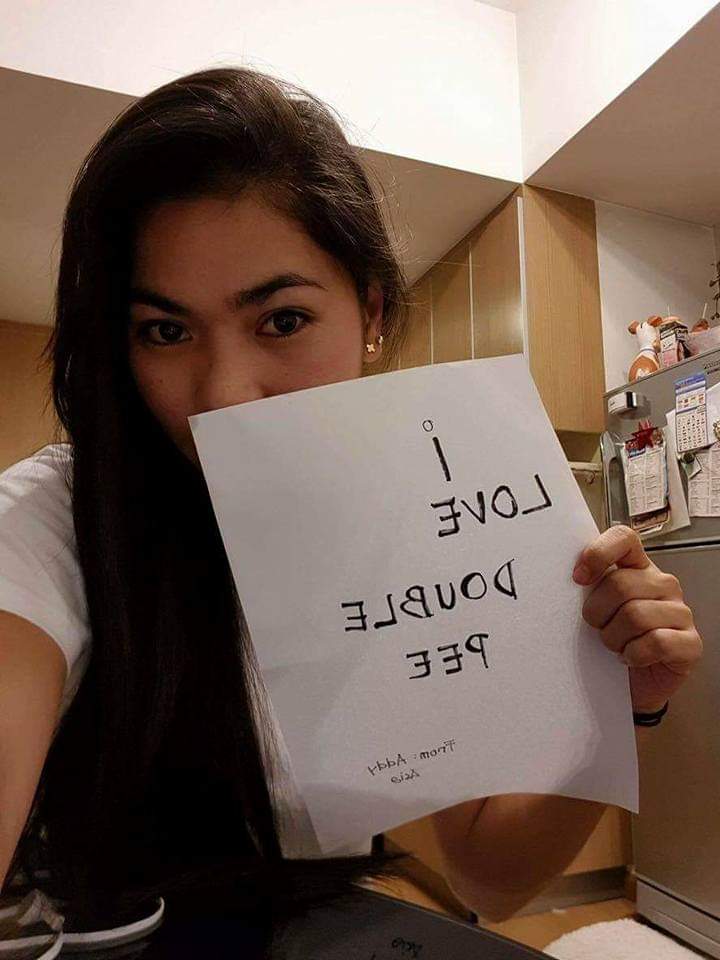 I
LOVE
DOUBLE
PEE
From: Addy
Acio